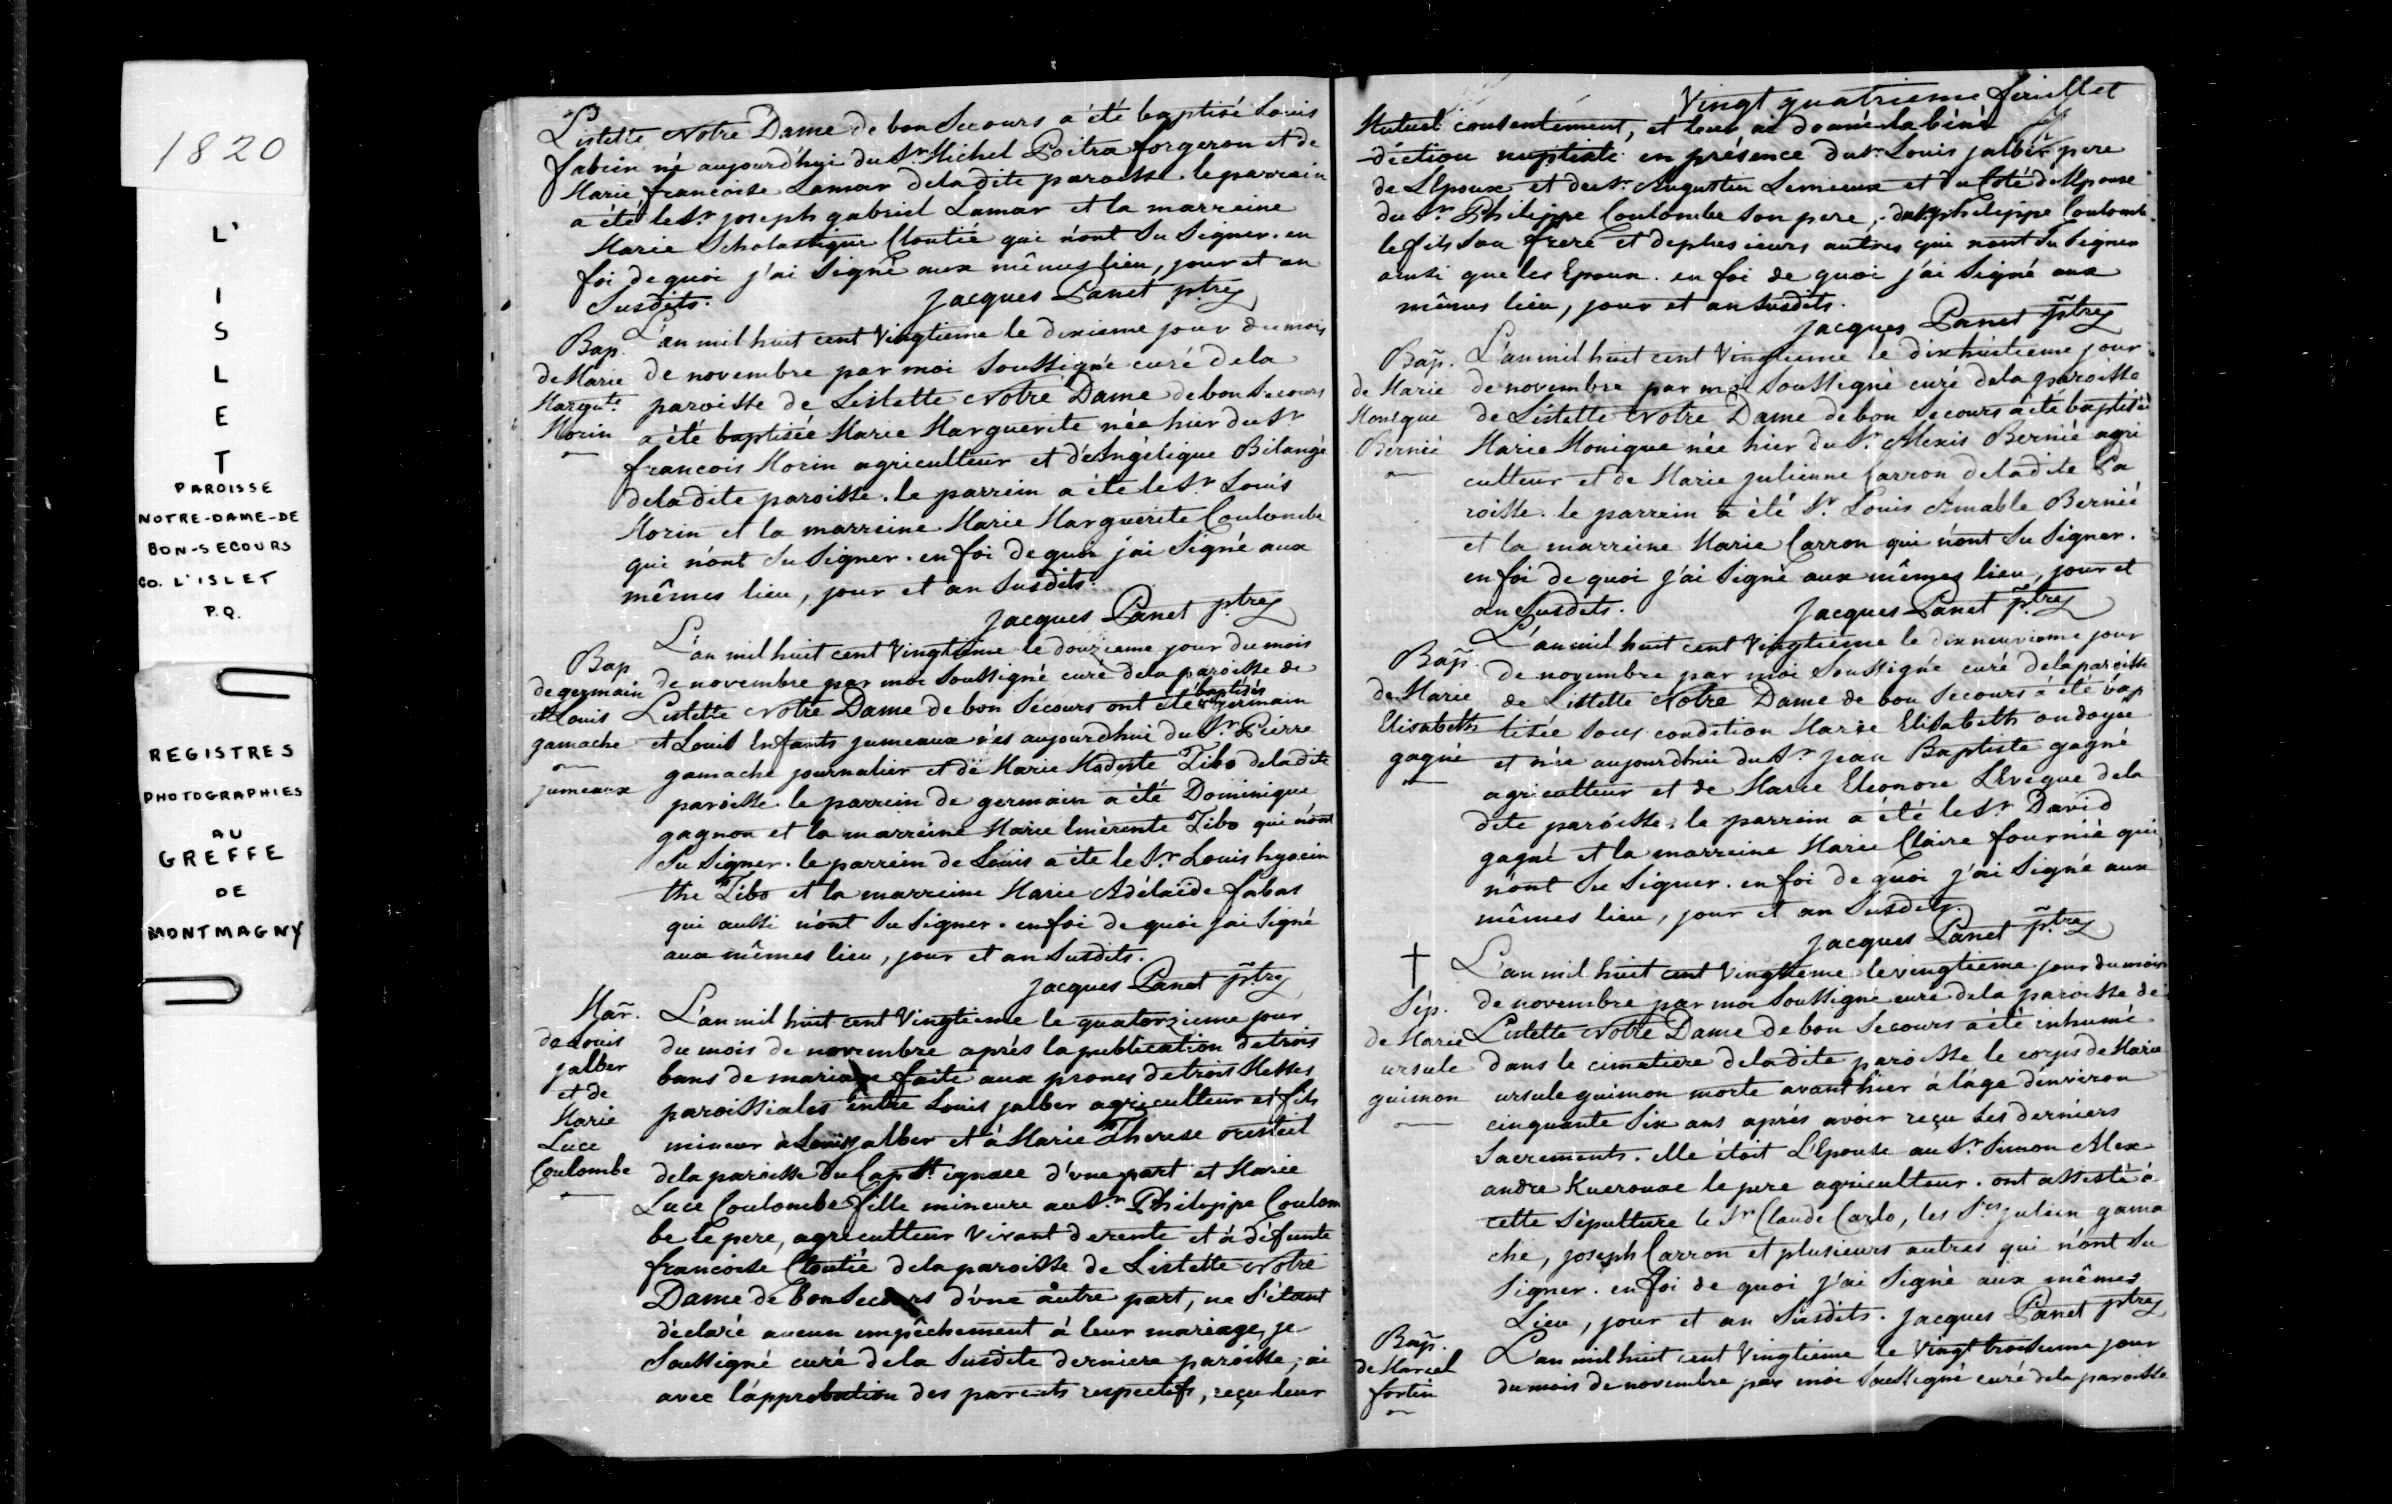 1820
L'
I
S
L
E
T
PAROISSE
NOTRE-DAME-DE
BON-SECOURS
CO. L'ISLET
P.Q.
REGISTRES
PHOTOGRAPHIES
AU
GREFFE
DE
MONTMAGNY
Lislette Notre Dame de bon Secours a été baptisé Louis
fabien né aujourd'hui du Sr. Michel Poitra forgeron et de
Marie francoise Lamar de la dite paroisse. le parrain
a été le Sr. joseph gabriel Lamar et la marreine
Marie Scholastique Cloutié qui n'ont su signer. en
foi de quoi j'ai signé aux mêmes lieu, jour et an
susdits. Jacques Panet ptre
Bap.
de Marie
Margte.
Morin
L'an mil huit cent vingtieme le dixieme jour du mois
de novembre par moi soussigné curé de la
paroisse de Lislette Notre Dame de bon Secours
a été baptisée Marie Marguerite née hier du Sr
francois Morin agriculteur et d'Angélique Bélangé
de la dite paroisse. le parrein a été le Sr. Louis
Morin et la marreine Marie Marguerite Coulombe
qui n'ont su signer. en foi de quoi j'ai signé aux
mêmes lieu, jour et an susdits.
Jacques Panet ptre
Bap
de germain
et Louis
gamache
jumeaux
L'an mil huit cent vingtieme le douzieme jour du mois
de novembre par moi soussigné curé de la paroisse de
Lislette Notre Dame de bon Secours ont été baptisés germain
et Louis Enfants jumeaux nés aujourdhui du Sr. Pierre
gamache journalier et de Marie Modeste Tibo de la dite
paroisse. le parrein de germain a été Dominique
gagnon et la marreine Marie Emérente Tibo qui n'ont
su signer. le parrein de Louis a été le Sr. Louis hyacin
the Tibo et la marreine Marie Adélaïde fabas
qui aussi n'ont su signer. en foi de quoi j'ai signé
aux mêmes lieu, jour et an susdits.
Jacques Panet ptre
Mar.
de Louis
jalber
et de
Marie
Luce
Coulombe
L'an mil huit cent vingtieme le quatorzieme jour
du mois de novembre après la publication de trois
bans de mariage faite aux prones de trois Messes
paroissiales entre Louis jalber agriculteur et fils
mineur à Louis jalber et à Marie Therese
de la paroisse du Cap St. ignace d'une part et Marie
Luce Coulombe fille mineure au Sr. Philippe Coulom
be le pere, agriculteur vivant de rente et à défunte
francoise Cloutié de la paroisse de Lislette Notre
Dame de Bon Secours d'une autre part, ne s'étant
déclaré aucun empêchement à leur mariage, je
soussigné curé de la susdite derniere paroisse, ai
avec l'approbation des parents respectifs, reçu leur
Vingt quatrieme feuillet
Mutuel consentement, et leur ai donné la béné
diction nuptiale en présence du Sr. Louis jalber pere
de L'Epoux et du Sr. Augustin Lemieux et du Coté de l'Epouse
du Sr. Philippe Coulombe son pere, du Sr. philippe Coulombe
le fils son frere et de plusieurs autres qui n'ont su signer
ainsi que les Epoux. en foi de quoi j'ai signé aux
mêmes lieu, jour et an susdits.
Jacques Panet ptre
Bap.
de Marie
Monique
Bernié
L'an mil huit cent vingtieme le dix huitieme jour
de novembre par moi soussigné curé de la paroisse
de Lislette Notre Dame de bon Secours a été baptisée
Marie Monique née hier du Sr. Alexis Bernié agri
culteur et de Marie julienne Carron de la dite Pa
roisse. le parrein a été Sr. Louis Amable Bernié
et la marreine Marie Carron qui n'ont su signer.
en foi de quoi j'ai signé aux mêmes lieu, jour et
an susdits. Jacques Panet ptre
Bap.
de Marie
Elisabeth
gagné
L'an mil huit cent vingtieme le dix neuvieme jour
de novembre par moi soussigné curé de la paroisse
de Lislette Notre Dame de bon Secours a été bap
tisée sous condition Marie Elisabeth ondoyée
et née aujourdhui du Sr. jean Baptiste gagné
agriculteur et de Marie Eleonore L'Evéque de la
dite paroisse. le parrein a été le Sr. David
gagné et la marreine Marie Claire fournié qui
n'ont su signer. en foi de quoi j'ai signé aux
mêmes lieu, jour et an susdits.
Jacques Panet ptre
†
Sép.
de Marie
ursule
guimon
L'an mil huit cent vingtieme le vingtieme jour du mois
de novembre par moi soussigné curé de la paroisse de
Lislette Notre Dame de bon Secours a été inhumé
dans le cimetiere de la dite paroisse le corps de Marie
ursule guimon morte avant hier à l'âge d'environ
cinquante six ans après avoir reçu ses derniers
Sacrements. elle étoit L'Epouse au Sr. Simon Alex
andre Kuerouac le pere agriculteur. ont assisté à
cette sépulture le Sr Claude Carlo, les Srs julien gama
che, joseph Carron et plusieurs autres qui n'ont su
signer. en foi de quoi j'ai signé aux mêmes
Lieu, jour et an susdits. Jacques Panet ptre
Bap.
de Marcel
fortin
L'an mil huit cent vingtieme le vingt troisieme jour
du mois de novembre par moi soussigné curé de la paroisse